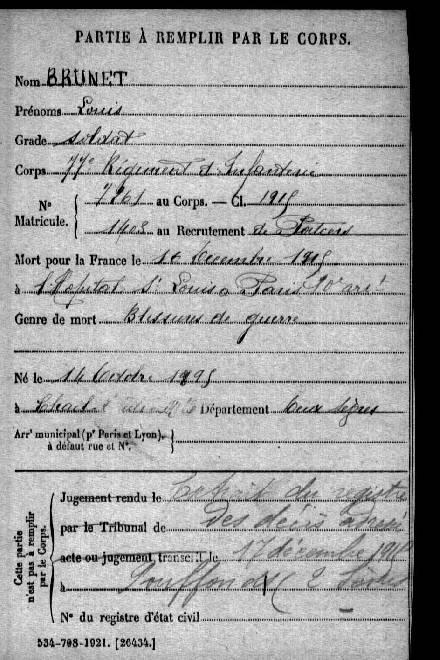 PARTIE À REMPLIR PAR LE CORPS.
Nom BRUNET
Prénoms Louis
Grade soldat
Corps 77e Régiment d'Infanterie
Nº Matricule. 7261 au Corps. — Cl. 1915
1403 au Recrutement de Poitiers
Mort pour la France le 16 décembre 1915
à l'Hôpital St Louis à Paris 10e arrt
Genre de mort Blessures de guerre
Né le 14 Octobre 1895
à Département Deux Sèvres
Arrt municipal (pr Paris et Lyon), à défaut rue et Nº.
Cette partie n'est pas à remplir par le Corps.
Jugement rendu le Extrait du registre
par le Tribunal de des décès
acte ou jugement transcrit le 17 décembre 1915
à
Nº du registre d'état civil
534-708-1921. [26434.]